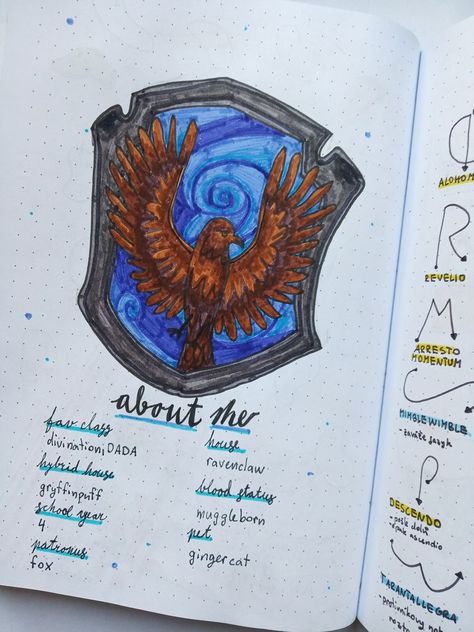 about me
fav class
divination i DADA
hybrid house
gryffinpuff
school year
4
patronus
fox
house
ravenclaw
blood status
muggleborn
pet
ginger cat
ALOHOM
REVELIO
ARRESTO
MOMENTUM
MIMBLEWIMBLE
DESCENDO
TARANTALLEGRA